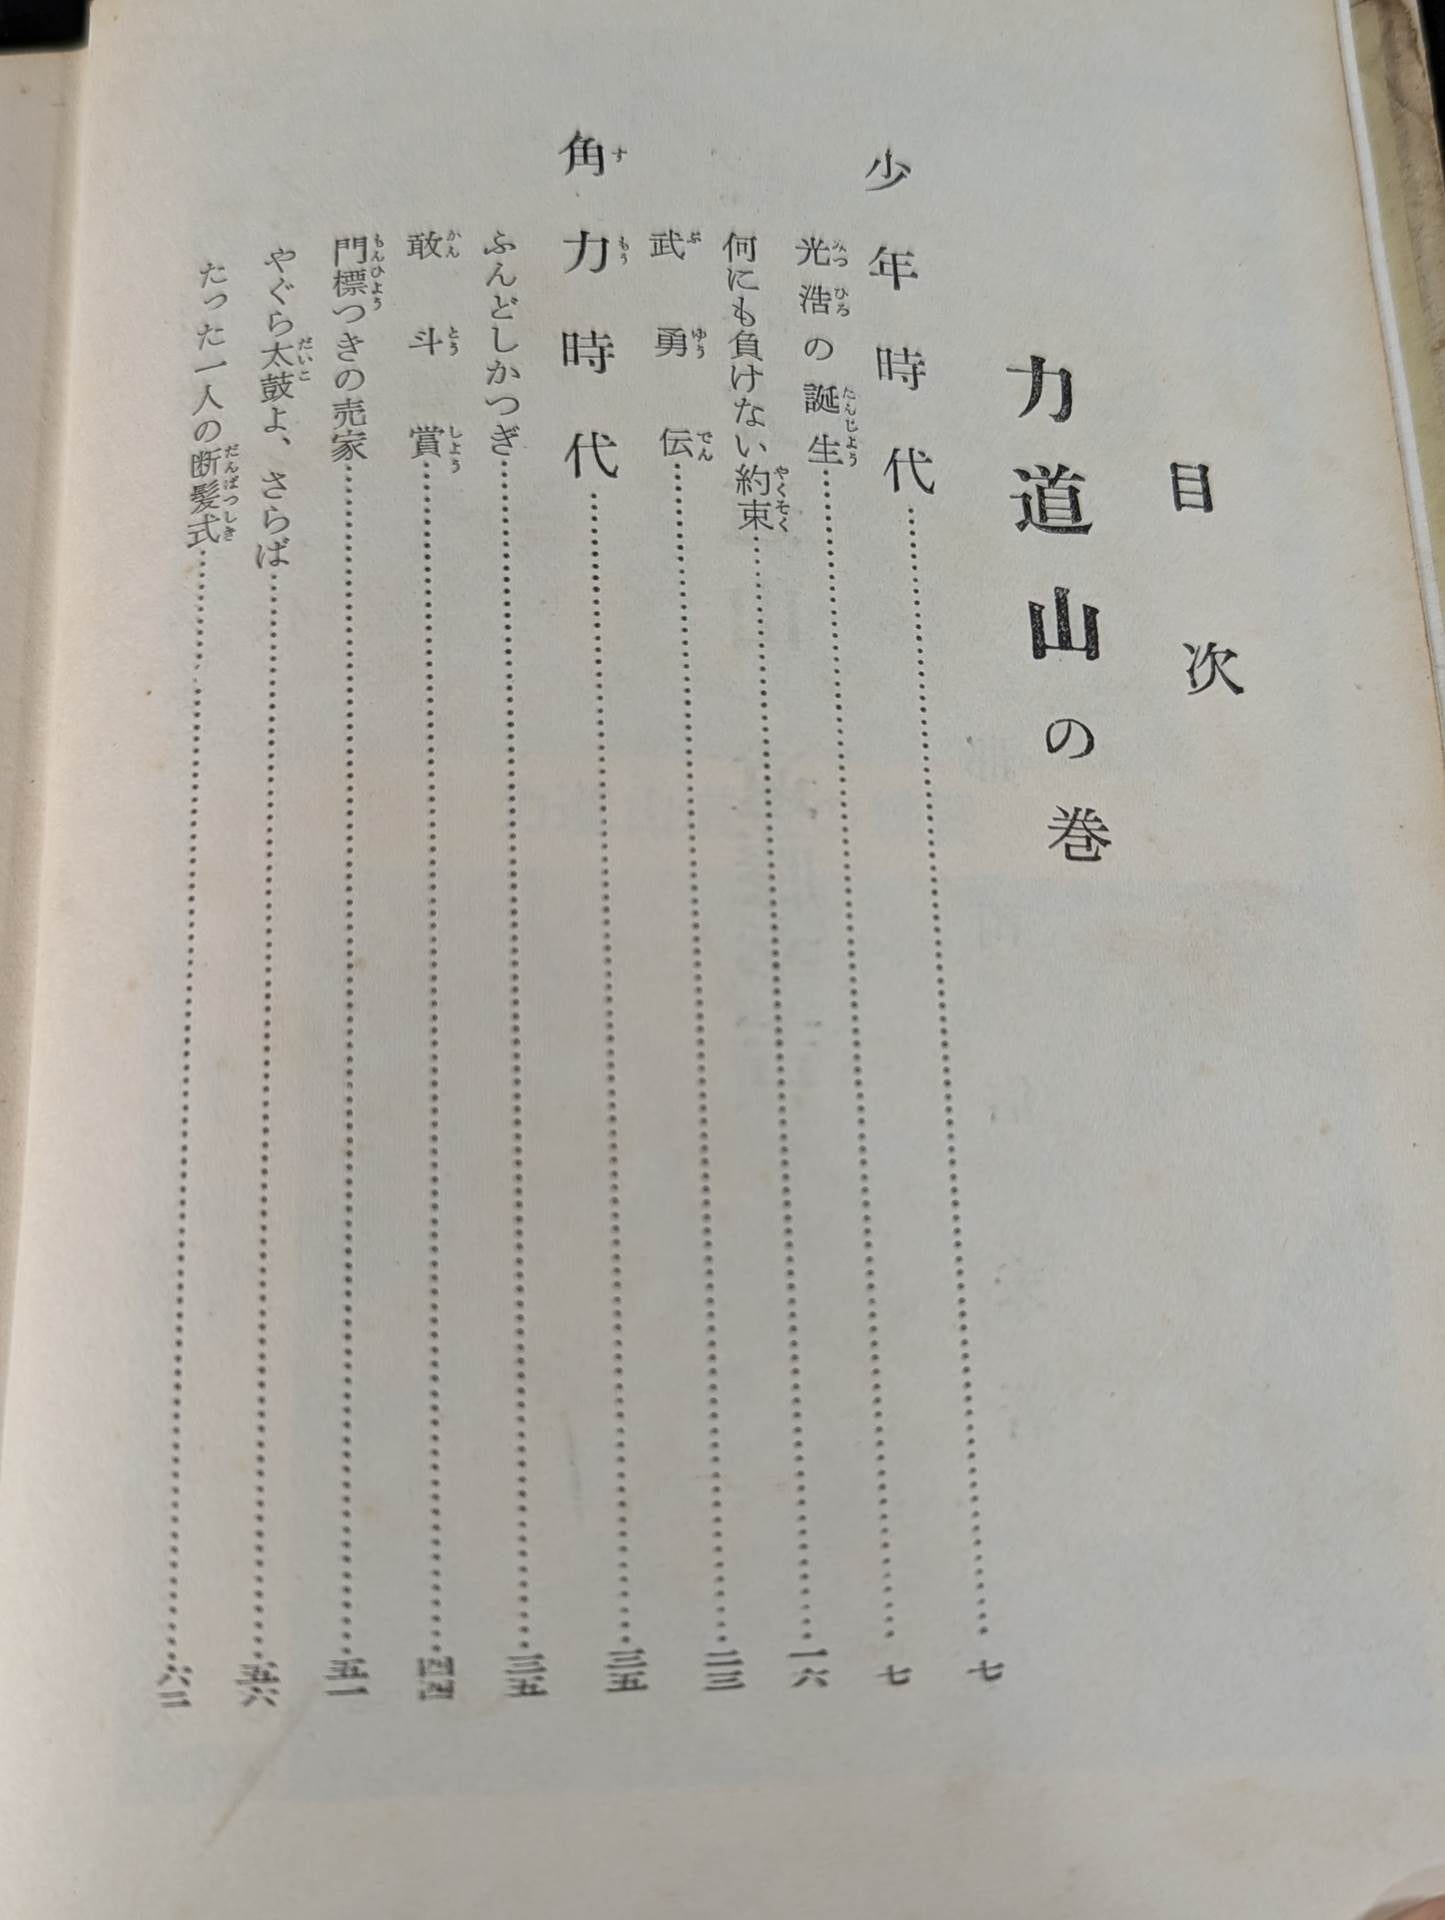 目次
力道山の巻
少年時代……七
光浩の誕生……七
何にも負けない約束……一六
武勇伝……二三
角力時代……三五
ふんどしかつぎ……三五
敢斗賞……四四
門標つきの売家……五一
やぐら太鼓よ、さらば……五六
たった一人の断髪式……六二